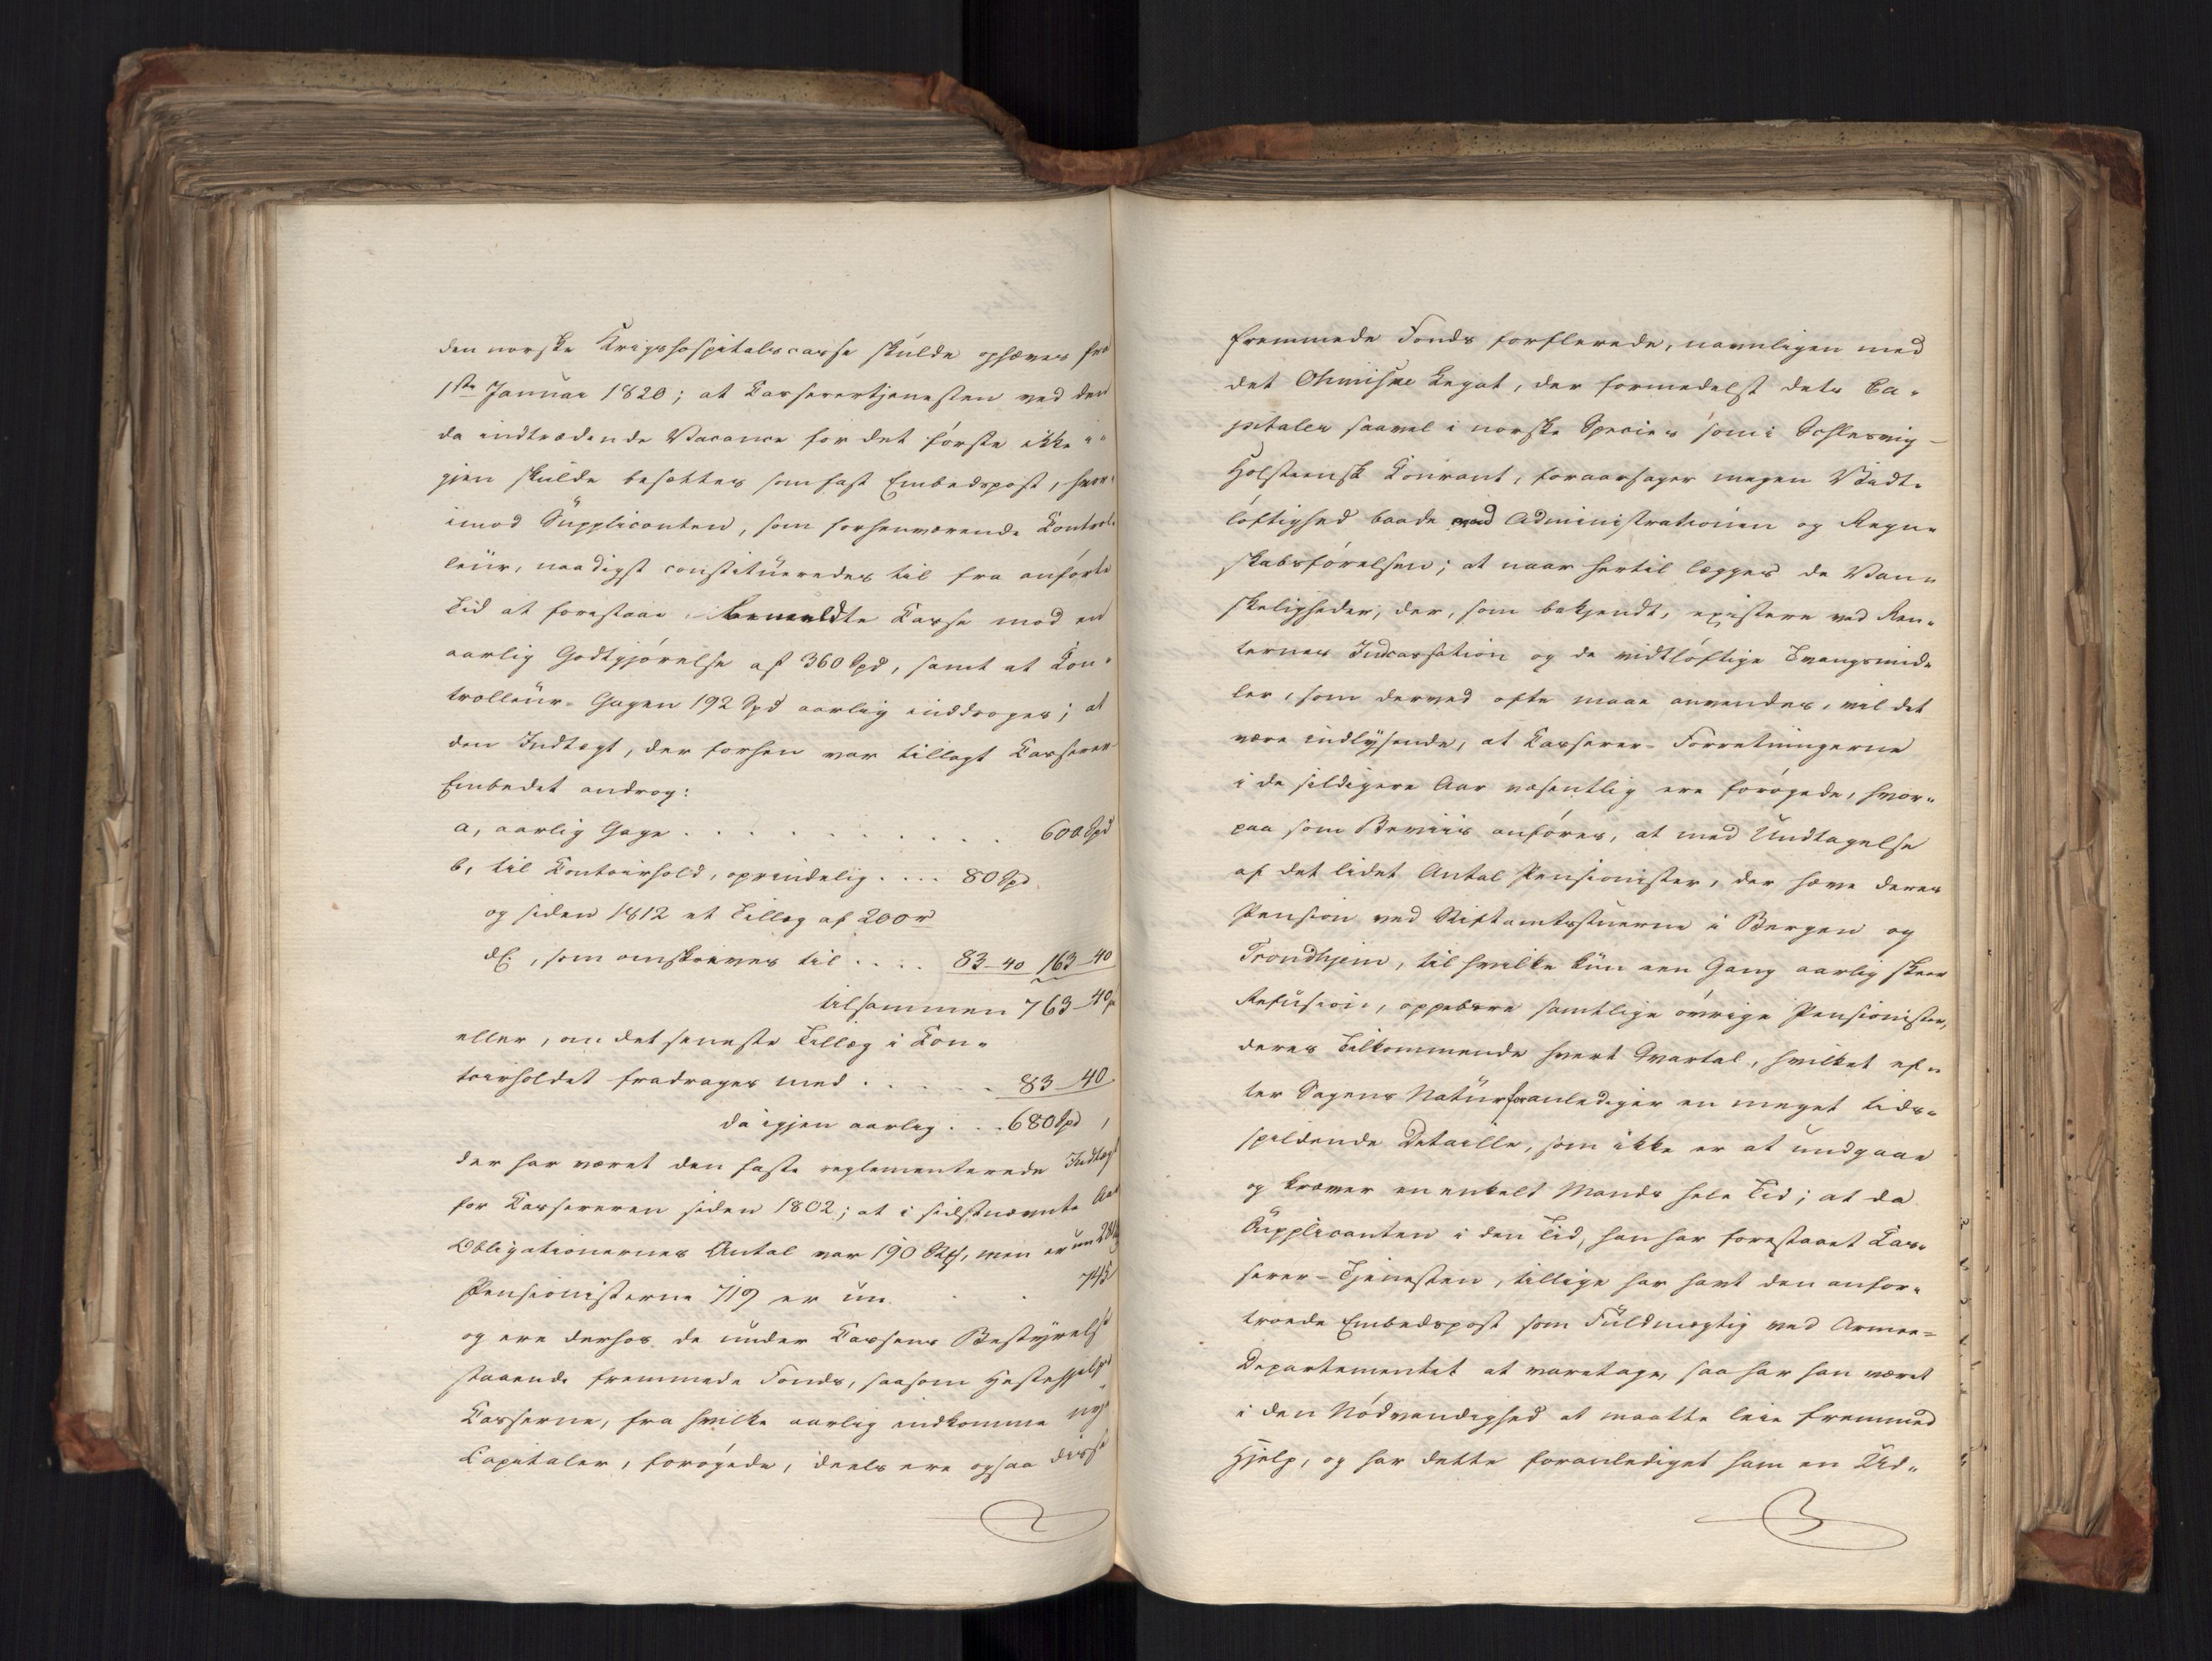 den norske Krigshospitalscasse skulde ophæves fra
1ste Januar 1820; at Casserertjenesten ved den
da indtrædende Vacance for det første ikke i-
gjen skulde besættes som fast Embedspost, hvor-
imod Supplicanten, som forhenværende Control-
leur, naadigst constitueredes til fra anførte
Tid at forestaae bemeldte Casse mod en
aarlig Godtgjørelse af 360 Spd, samt at Con-
trolleur-Gagen 192 Spd aarlig inddroges; at
den Indtægt, der forhen var tillagt Casserer-
Embedet androg:
a, aarlig Gage . . . . . . . . . . . 600 Spd
b, til Contoirhold, oprindelig . . . . 80 Spd
og siden 1812 et Tillæg af 200 r
som omskrives til . . . . 83-40 163-40
tilsammen 763-40
eller, om det seneste Tillæg i Con-
toirholdet fradrages med . . . . . . 83-40
da igjen aarlig . . . 680 Spd,
der har været den faste reglementerede Indtægt
for Cassereren siden 1802; at i sidstnævnte Aar
Obligationernes Antal var 190 men er nu
Pensionisterne 719 er nu . . 745
og ere derhos de under Cassens Bestyrelse
staaende fremmede Fonds, saasom Hestehjelps
Casserne, fra hvilke aarlig indkomme nye
Capitaler, forøgede, deels ere ogsaa disse
fremmede Fonds forflerede, navnligen med
det Ohmiske Legat, der formedelst dets Ca-
pitaler saavel i norske Species som i Schlesvig-
Holsteensk Courant, foraarsager megen Vidt-
løftighed baade med Administrationen og Regn-
skabsførelsen; at naar hertil lægges de Van-
skeligheder, der, som bekjendt, existere ved Ren-
ternes Indcassation og de vidtløftige Tvangsmid-
ler, som derved ofte maae anvendes, vil det
være indlysende, at Casserer-Forretningerne
i de sildigere Aar væsentlig ere forøgede, hvor-
paa som Beviis anføres, at med Undtagelse
af det lidet Antal Pensionister, der hæve deres
Pension ved Stiftamtsstuerne i Bergen og
Trondhjem, til hvilke kun een Gang aarlig skeer
Refusion, oppebære samtlige øvrige Pensionister,
deres Tilkommende hvert Qvartal, hvilket ef-
ter Sagens Natur foranlediger en meget tids-
spildende Detaille, som ikke er at undgaae
og kræver en enkelt Mands hele Tid; at da
Supplicanten i den Tid, han har forestaaet Cas-
serer-Tjenesten, tillige har havt den anfor-
troede Embedspost som Fuldmægtig ved Armee-
Departementet at varetage, saa har han været
i den Nødvendighed at maatte leie fremmed
Hjelp, og har dette foranlediget ham en Ud-